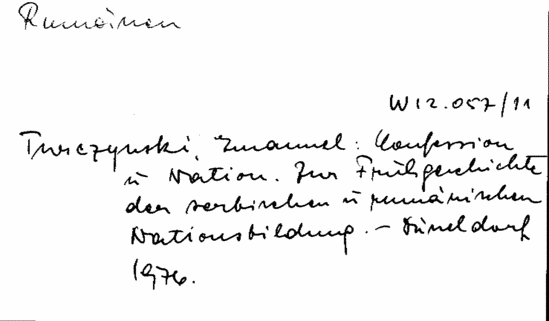 Rumänen
W 12.057/11
Turczynski, Emanuel: Konfession
u Nation. Zur Frühgeschichte
der serbischen u rumänischen
Nationsbildung. - Düsseldorf
1976.